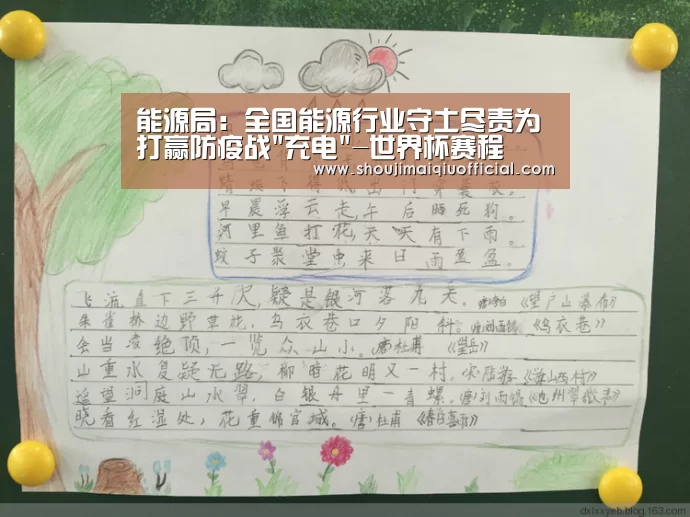 能源局：全国能源行业守土尽责为
打赢防疫战"充电"–世界杯赛程
www.shoujimaiqiuofficial.com
早晨浮云走,午后晒死狗。
河里鱼打花,天天有下雨。
蚊子聚堂虫来日雨盈盈。
飞流直下三千尺,疑是银河落九天。唐李白《望庐山瀑布》
朱雀桥边野草花,乌衣巷口夕阳斜。唐刘禹锡《乌衣巷》
会当凌绝顶,一览众山小。唐杜甫《望岳》
山重水复疑无路,柳暗花明又一村。宋陆游《游山西村》
遥望洞庭山水翠,白银丹里一青螺。唐刘禹锡
晓看红湿处,花重锦官城。唐杜甫《春夜喜雨》
dxlxxyeb.blog.163.com